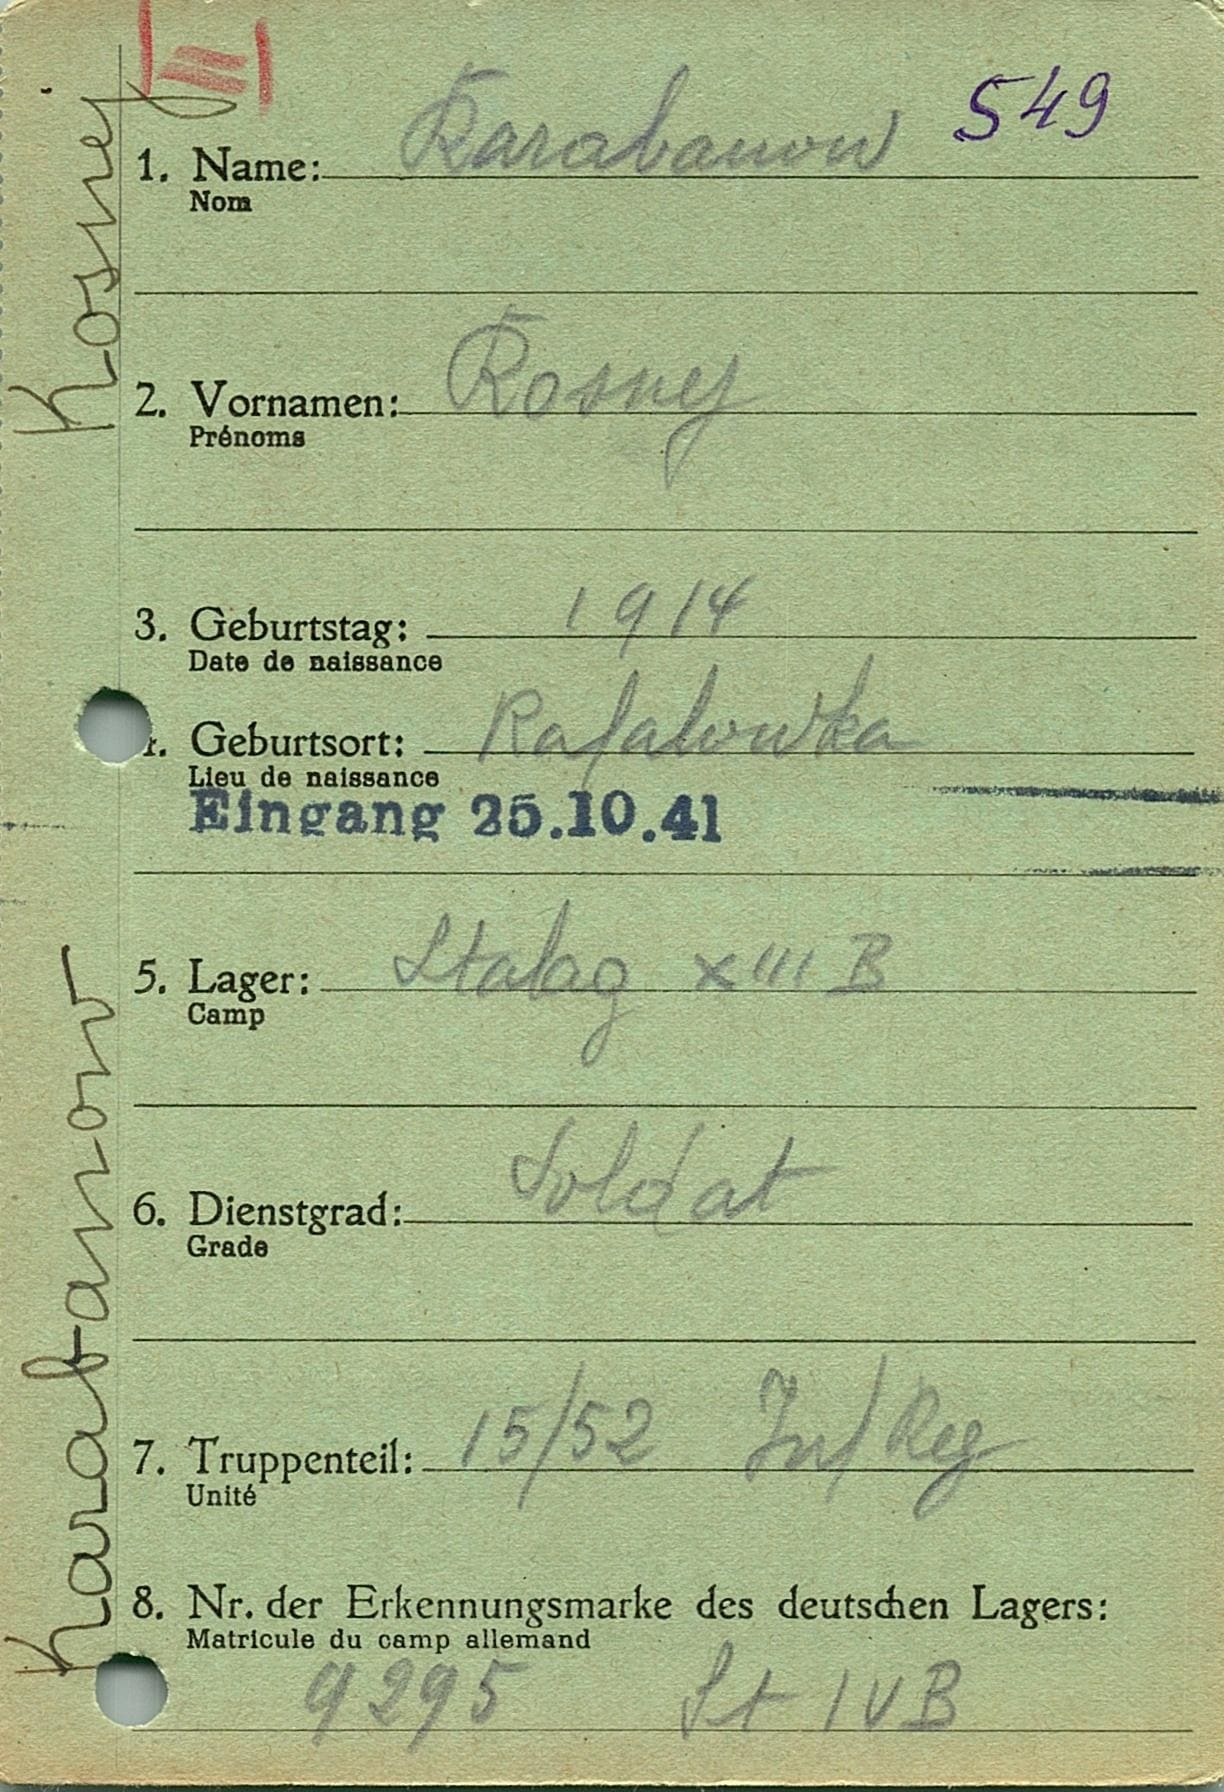 549
1. Name: Karabanow
Nom
2. Vornamen: Kosney
Prénoms
3. Geburtstag: 1914
Date de naissance
4. Geburtsort: Rafalowka
Lieu de naissance
Eingang 25.10.41
5. Lager: Stalag XIII B
Camp
6. Dienstgrad: Soldat
Grade
7. Truppenteil: 15/52 Inf/Reg
Unité
8. Nr. der Erkennungsmarke des deutschen Lagers:
Matricule du camp allemand
9295 St IVB
Karabanow Kosney